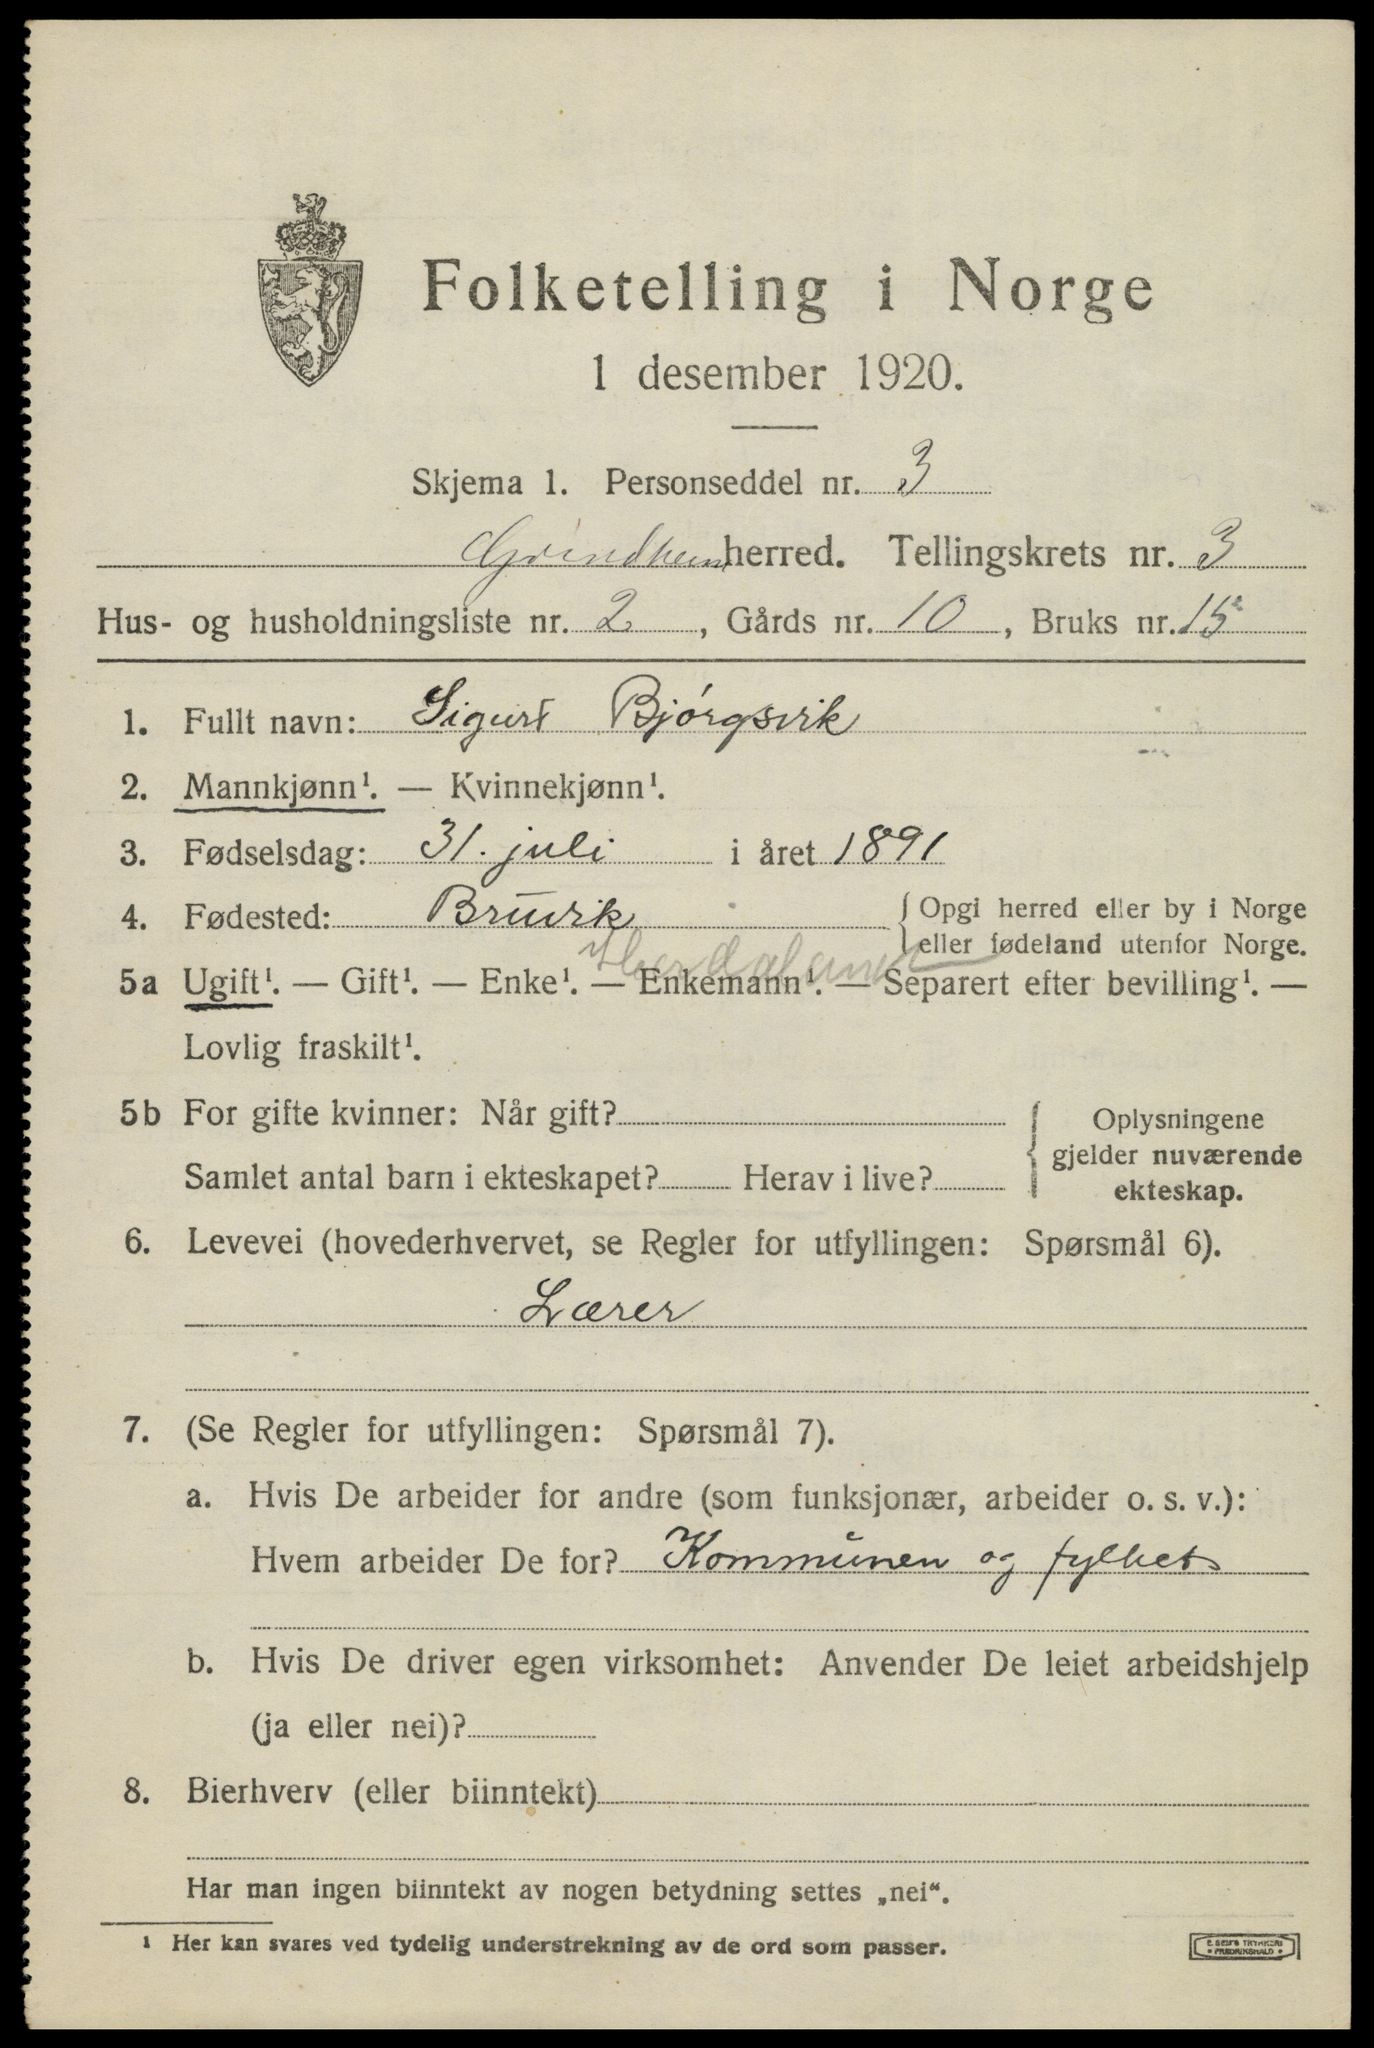 Folketelling i Norge
1 desember 1920.
Skjema 1. Personseddel nr. 3
Grindheim herred. Tellingskrets nr. 3
Hus- og husholdningsliste nr. 2, Gårds nr. 10, Bruks nr. 15
1. Fullt navn: Sigurt Bjórgsvik
2. Mannkjønn¹. — Kvinnekjønn¹.
3. Fødselsdag: 31. juli i året 1891
4. Fødested: Bruvik {Opgi herred eller by i Norge
eller fødeland utenfor Norge.
Hordaland
5a Ugift¹. — Gift¹. — Enke¹. — Enkemann¹. — Separert efter bevilling¹. —
Lovlig fraskilt¹.
5b For gifte kvinner: Når gift? {Oplysningene
gjelder nuværende
Samlet antal barn i ekteskapet? Herav i live? ekteskap.
6. Levevei (hovederhvervet, se Regler for utfyllingen: Spørsmål 6).
Lærer
7. (Se Regler for utfyllingen: Spørsmål 7).
a. Hvis De arbeider for andre (som funksjonær, arbeider o. s. v.):
Hvem arbeider De for? Kommunen og fylket
b. Hvis De driver egen virksomhet: Anvender De leiet arbeidshjelp
(ja eller nei)?
8. Bierhverv (eller biinntekt)
Har man ingen biinntekt av nogen betydning settes „nei“.
¹ Her kan svares ved tydelig understrekning av de ord som passer.
E. SEM'S TRYKKERI
• FREDRIKSHALD •